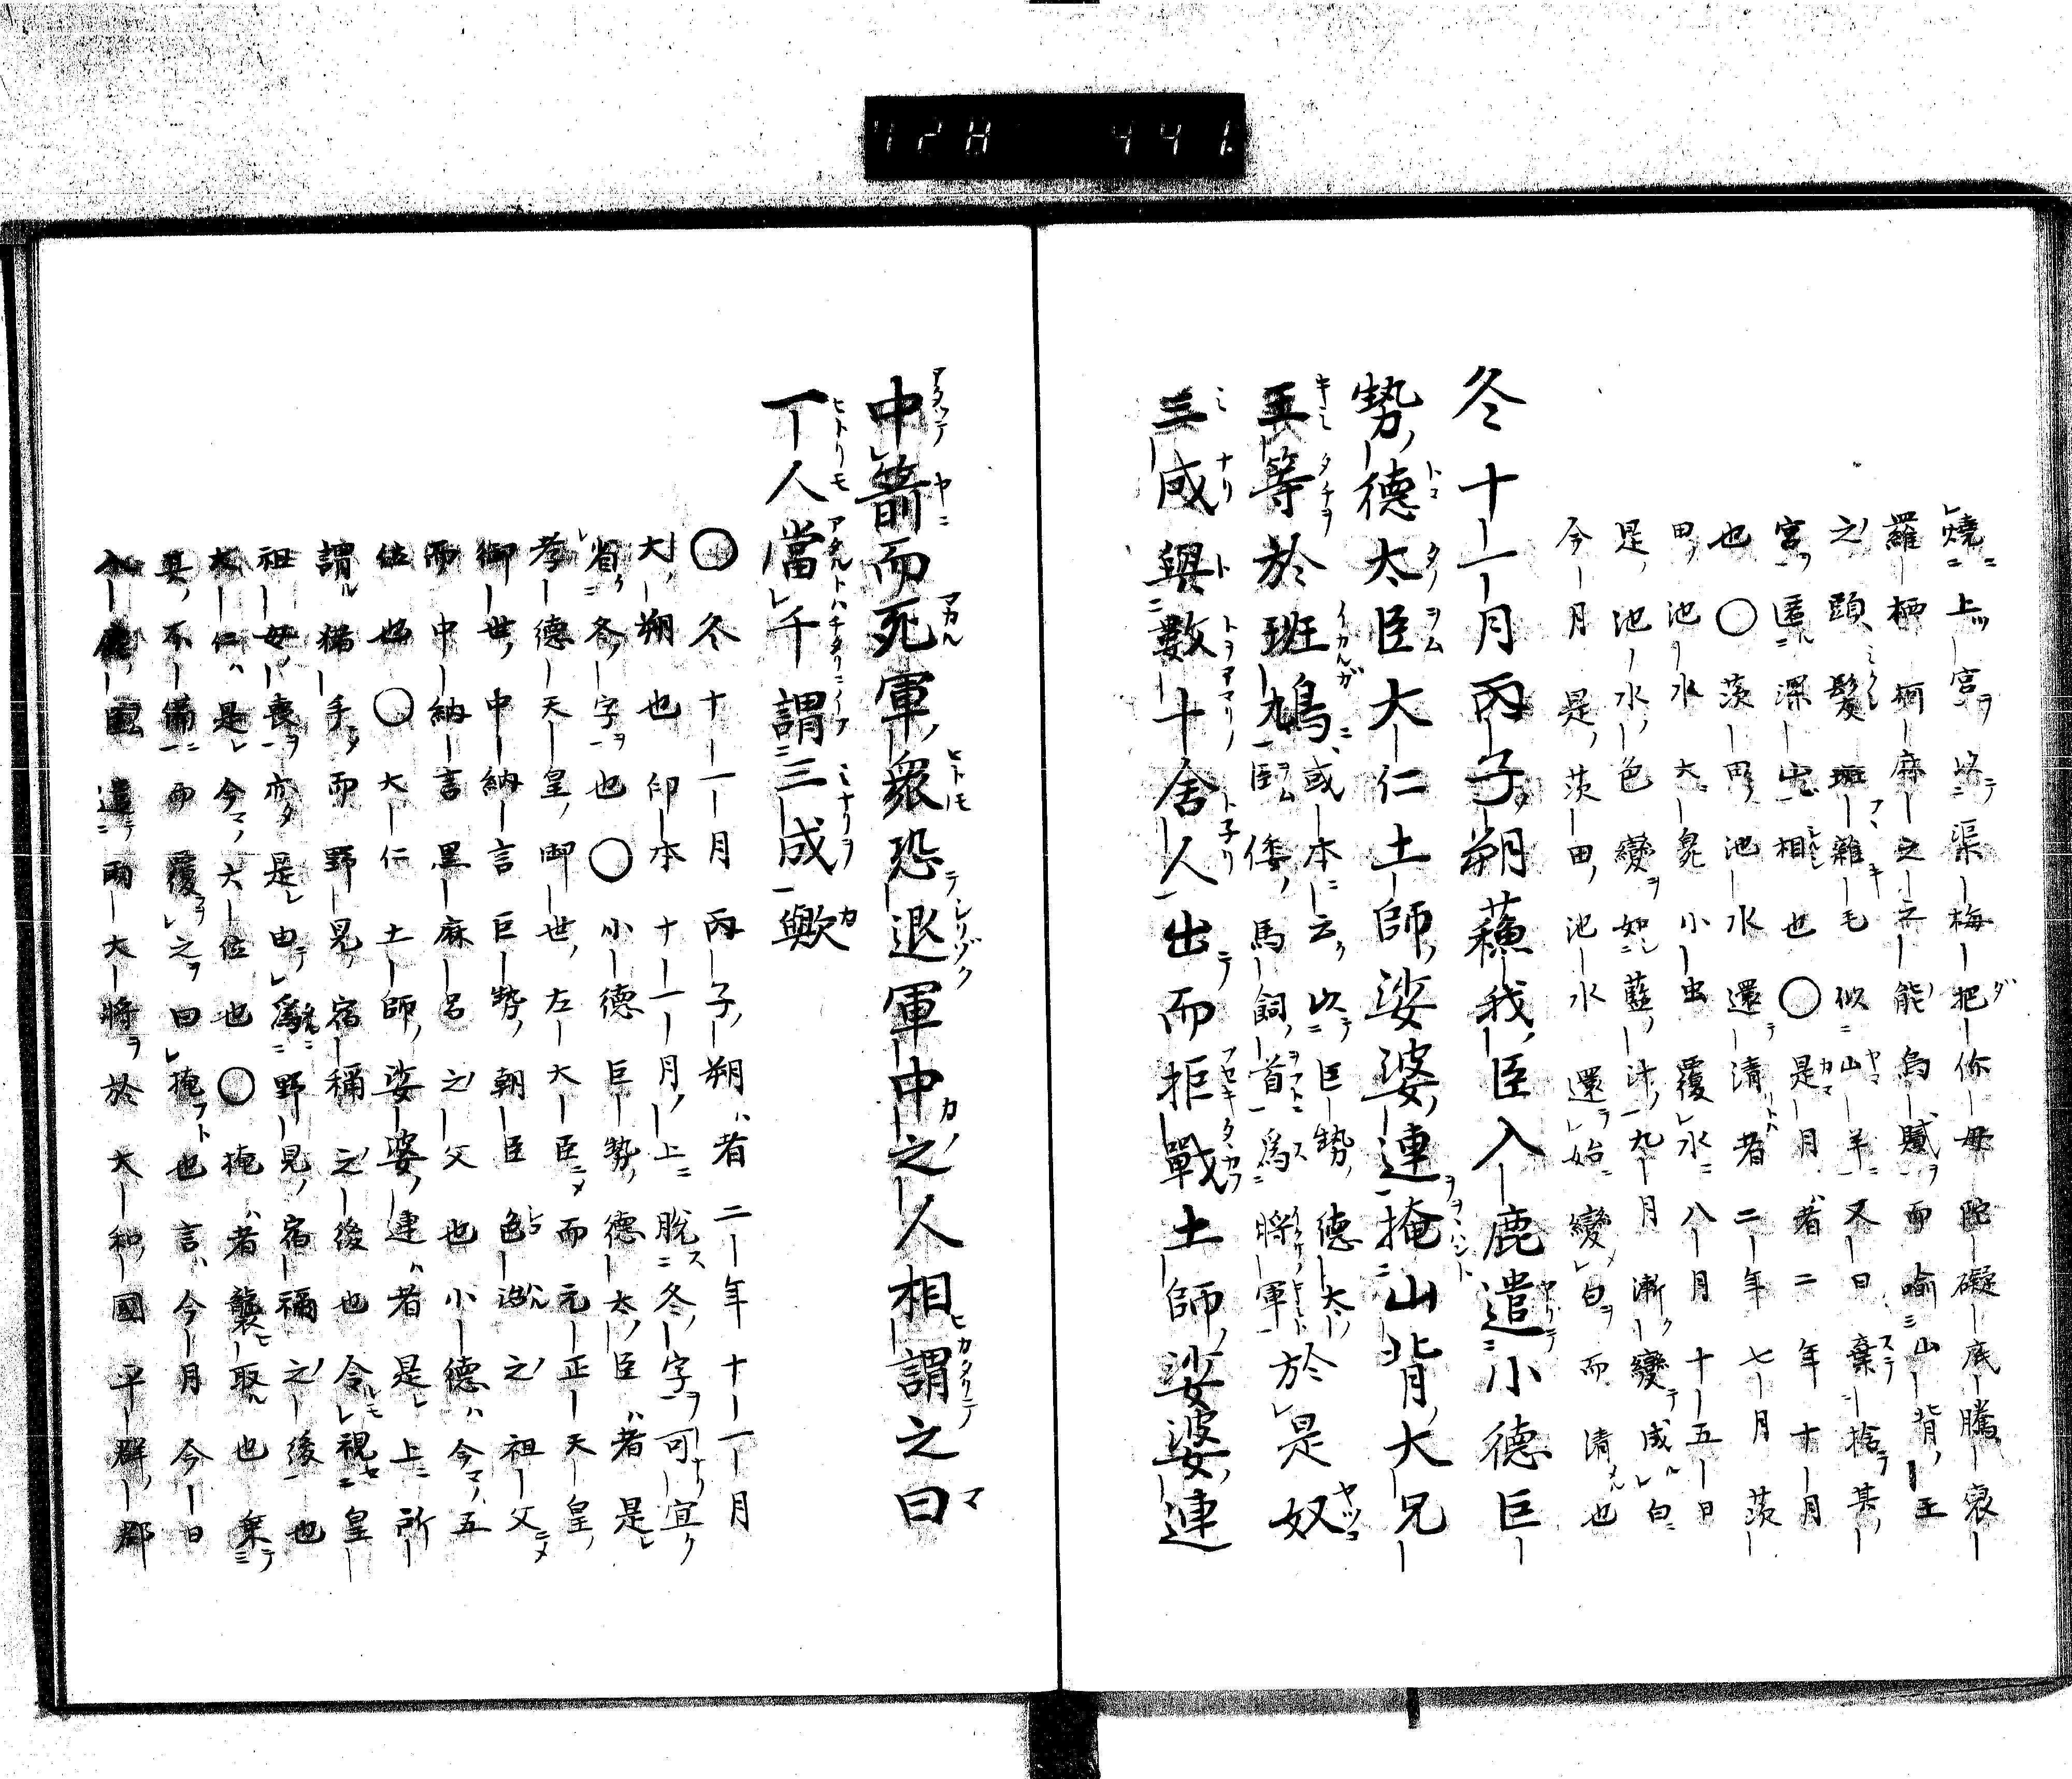 728 441
燒上宮以渠梅把你母陀礙底騰裒
羅栖柯麻之之能烏賦而喻山背王
之頭髮斑雜毛似山羊又曰棄捨其
宮匿深山相也〇是月者二年十月
也〇茨田池水還清者二年七月茨
田池水大臰小虫覆水八月十五日
是池水色變如藍汁九月漸變成白
今月是茨田池水還始變白而清也
冬十一月丙子朔蘓我臣入鹿遣小德巨
勢德太臣大仁土師娑婆連掩山背大兄
王等於斑鳩或本云以巨勢德太臣倭馬飼首爲將軍於是奴
三成與數十舍人出而拒戰土師娑婆連
中箭而死軍衆恐退軍中之人相謂之曰
一人當千謂三成歟
〇冬十一月丙子朔者二年十一月
大朔也印本十一月上脫冬字可宜
省冬字也〇小德巨勢德太臣者是
孝德天皇御世左大臣而元正天皇
御世中納言巨勢朝臣邑治之祖父
而中納言黒麻呂之父也小德今五
位也〇大仁土師娑婆連者是上所
謂猪手而野見宿稱之後也令視皇
祖母喪亦是由爲野見宿禰之後也
大仁是今六位也〇掩者襲取也棄
其不備而覆之曰掩也言今月今日
入鹿臣遣兩大將於大和國平群郡